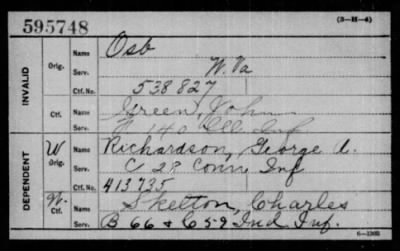 595748
(3-H-4)
INVALID
Orig.
Name Osb
Serv. W. Va
Ctf. No. 538827
Ctf.
Name Green, John
Serv. 140 Ill Inf
DEPENDENT
W Orig.
Name Richardson, George A.
Serv. C 28 Conn Inf
Ctf. No. 413735
W. Ctf.
Name Skelton, Charles
Serv. B 66 & C 59 Ind. Inf.